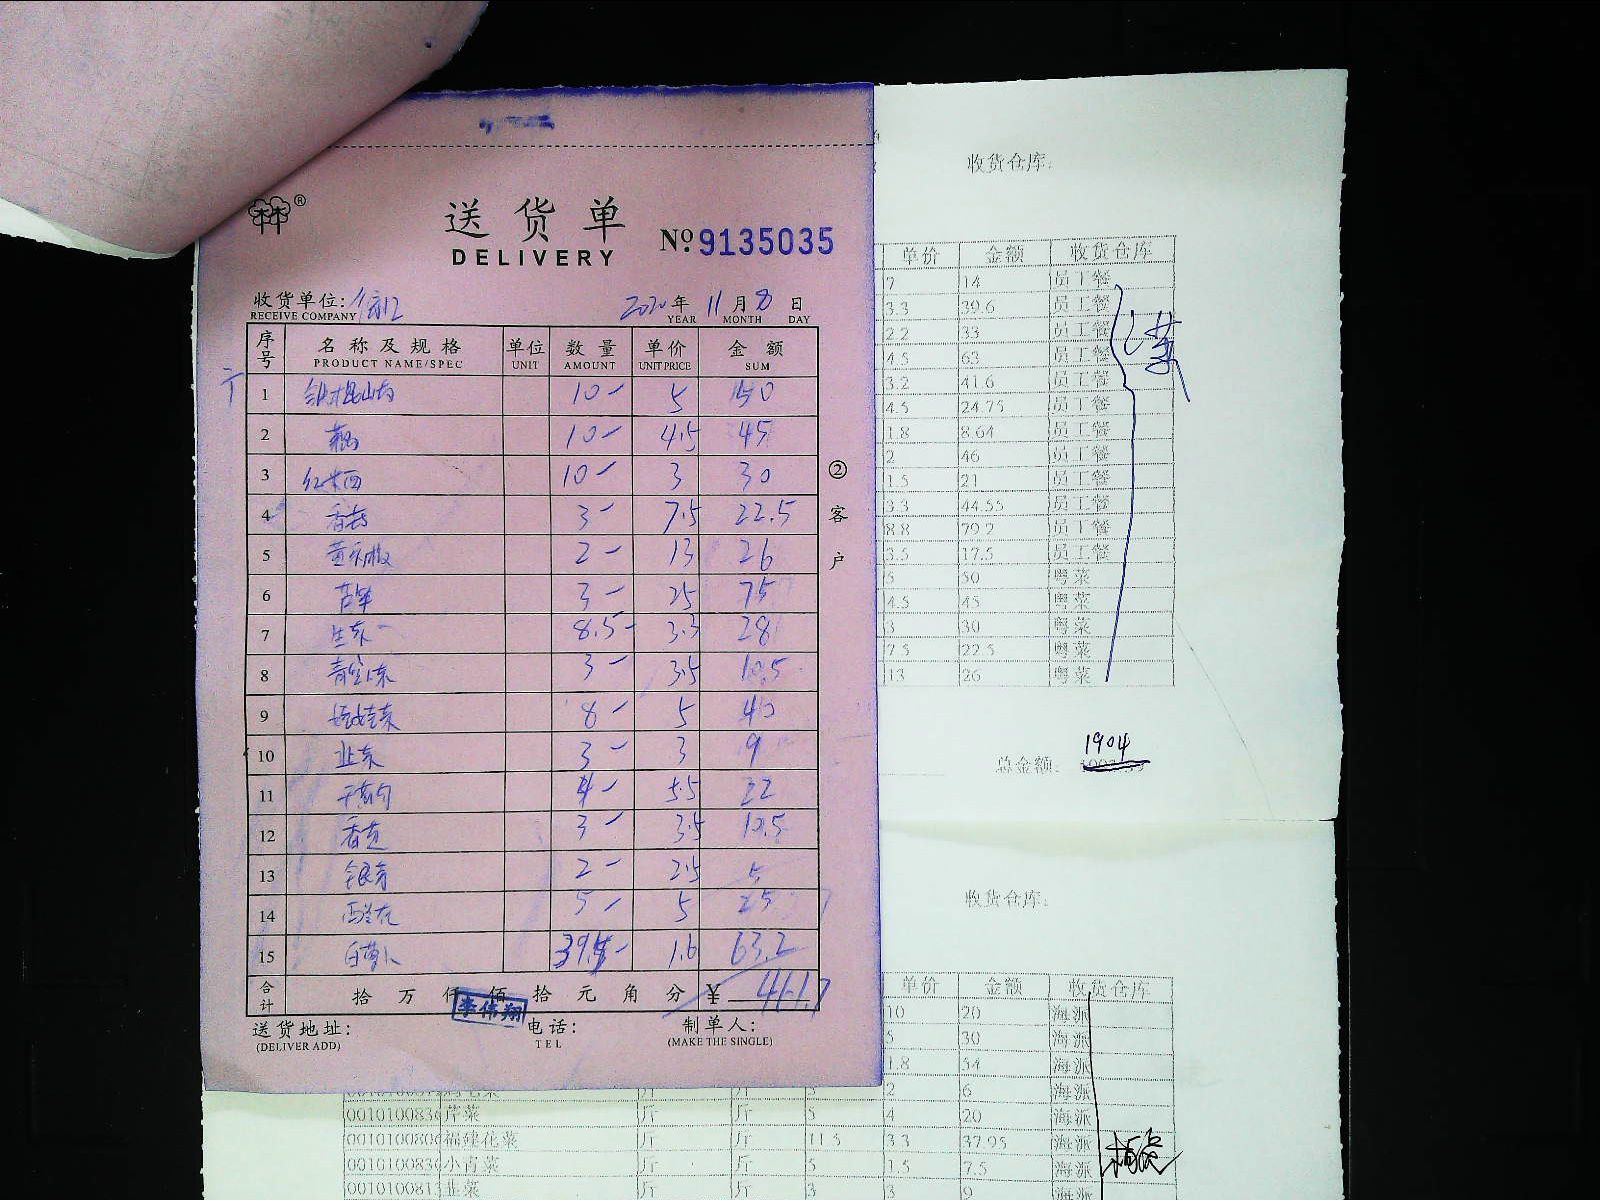 送货单
DELIVERY
№ 9135035
收货单位:
RECEIVE COMPANY
2020 年 11 月 8 日
YEAR MONTH DAY
序号 名称及规格 单位 数量 单价 金额
PRODUCT NAME/SPEC UNIT AMOUNT UNIT PRICE SUM
1 10- 5 50
2 10- 4.5 45
3 红米苋 10- 3 30
4 3- 7.5 22.5
5 2- 13 26
6 3- 25 75
7 生菜 8.5- 3.3 28
8 3- 3.5 10.5
9 娃娃菜 8- 5 40
10 韭菜 3- 3 9
11 4- 5.5 22
12 香芹 3- 3.5 10.5
13 银芽 2- 2.5 5
14 西兰花 5- 5 25
15 白萝卜 39.5- 1.6 63.2
合计 拾 万 仟 佰 拾 元 角 分 ¥ 461.7
李伟翔
送货地址: 电话: 制单人:
(DELIVER ADD) TEL (MAKE THE SINGLE)
② 客户
收货仓库:
单价 金额 收货仓库
7 14 员工餐
3.3 39.6 员工餐
2.2 33 员工餐
4.5 63 员工餐
3.2 41.6 员工餐
4.5 24.75 员工餐
1.8 8.64 员工餐
2 46 员工餐
1.5 21 员工餐
3.3 44.55 员工餐
8.8 79.2 员工餐
3.5 17.5 员工餐
5 50 粤菜
4.5 45 粤菜
3 30 粤菜
7.5 22.5 粤菜
13 26 粤菜
1904
总金额:
收货仓库:
单价 金额 收货仓库
10 20 海派
5 30 海派
1.8 54 海派
2 6 海派
芹菜 斤 斤 5 4 20 海派
福建花菜 斤 斤 11.5 3.3 37.95 海派
小青菜 斤 斤 5 1.5 7.5 海派
韭菜 斤 斤 3 3 9 海派